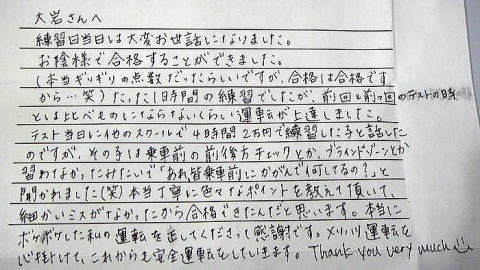 大岩さんへ
練習日当日は大変お世話になりました。
お陰様で合格することができました。
(本当ギリギリの点数だったらしいですが、合格は合格です
から…笑) たった1時間の練習でしたが、前回と前々回のテストの時
とは比べものにならないくらい運転が上達しました。
テスト当日に他のスクールで4時間2万円で練習した子と話した
のですが、その子は乗車前の前後方チェックとか、ブラインドゾーンとか
習わなかったみたいで「あれ皆乗車前にかがんで何してるの?」と
聞かれました(笑) 本当丁寧に色々なポイントを教えて頂いて、
細かいミスがなかったから合格できたんだと思います。本当に
ボケボケした私の運転を直してくださって感謝です。メリハリ運転を
心掛けて、これからも安全運転をしていきます。Thank you very much